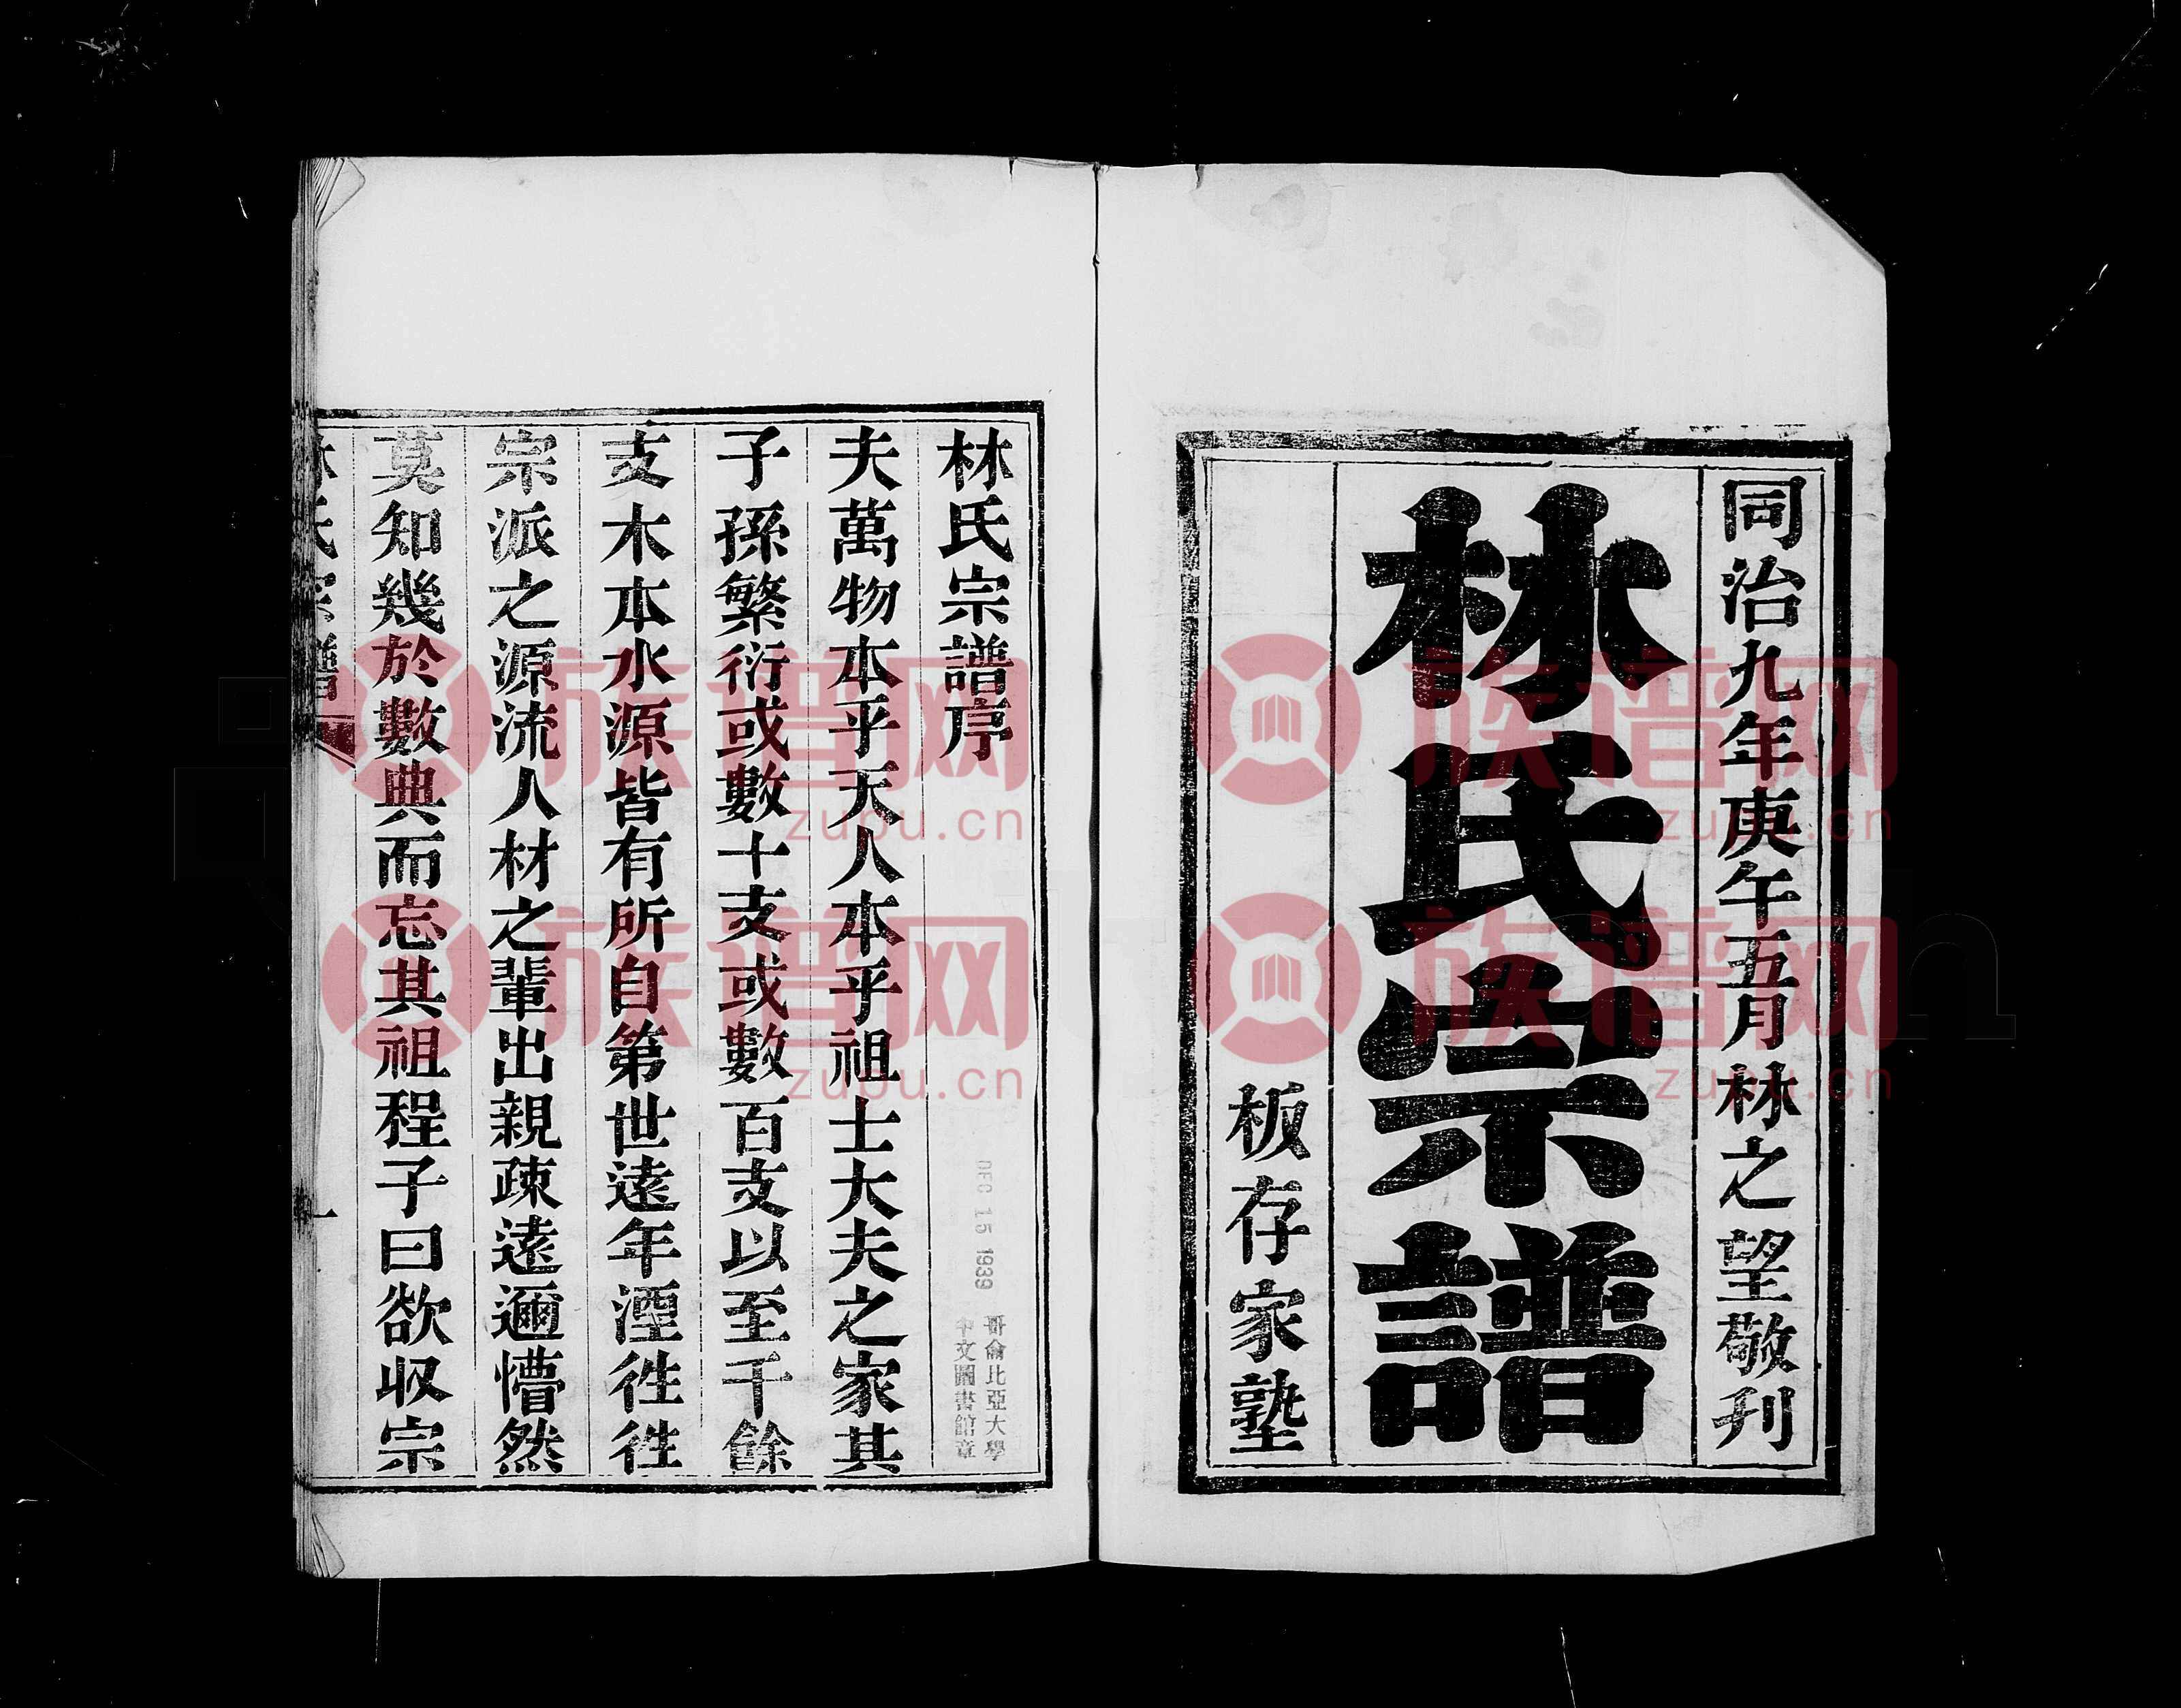 同治九年庚午五月林之望敬刊
林氏宗譜
板存家塾
林氏宗譜序
夫萬物本乎天人本乎祖士大夫之家其
子孫繁衍或數十支或數百支以至千餘
支木本水源皆有所自第世遠年湮徃徃
宗派之源流人材之輩出親疎遠邇懵然
莫知幾於數典而忘其祖程子曰欲収宗
林氏宗譜
一
DEC 15 1939
哥倫比亞大學
中文圖書館章
族谱网
zupu.cn
族谱网
zupu.cn
族谱网
zupu.cn
族谱网
zupu.cn